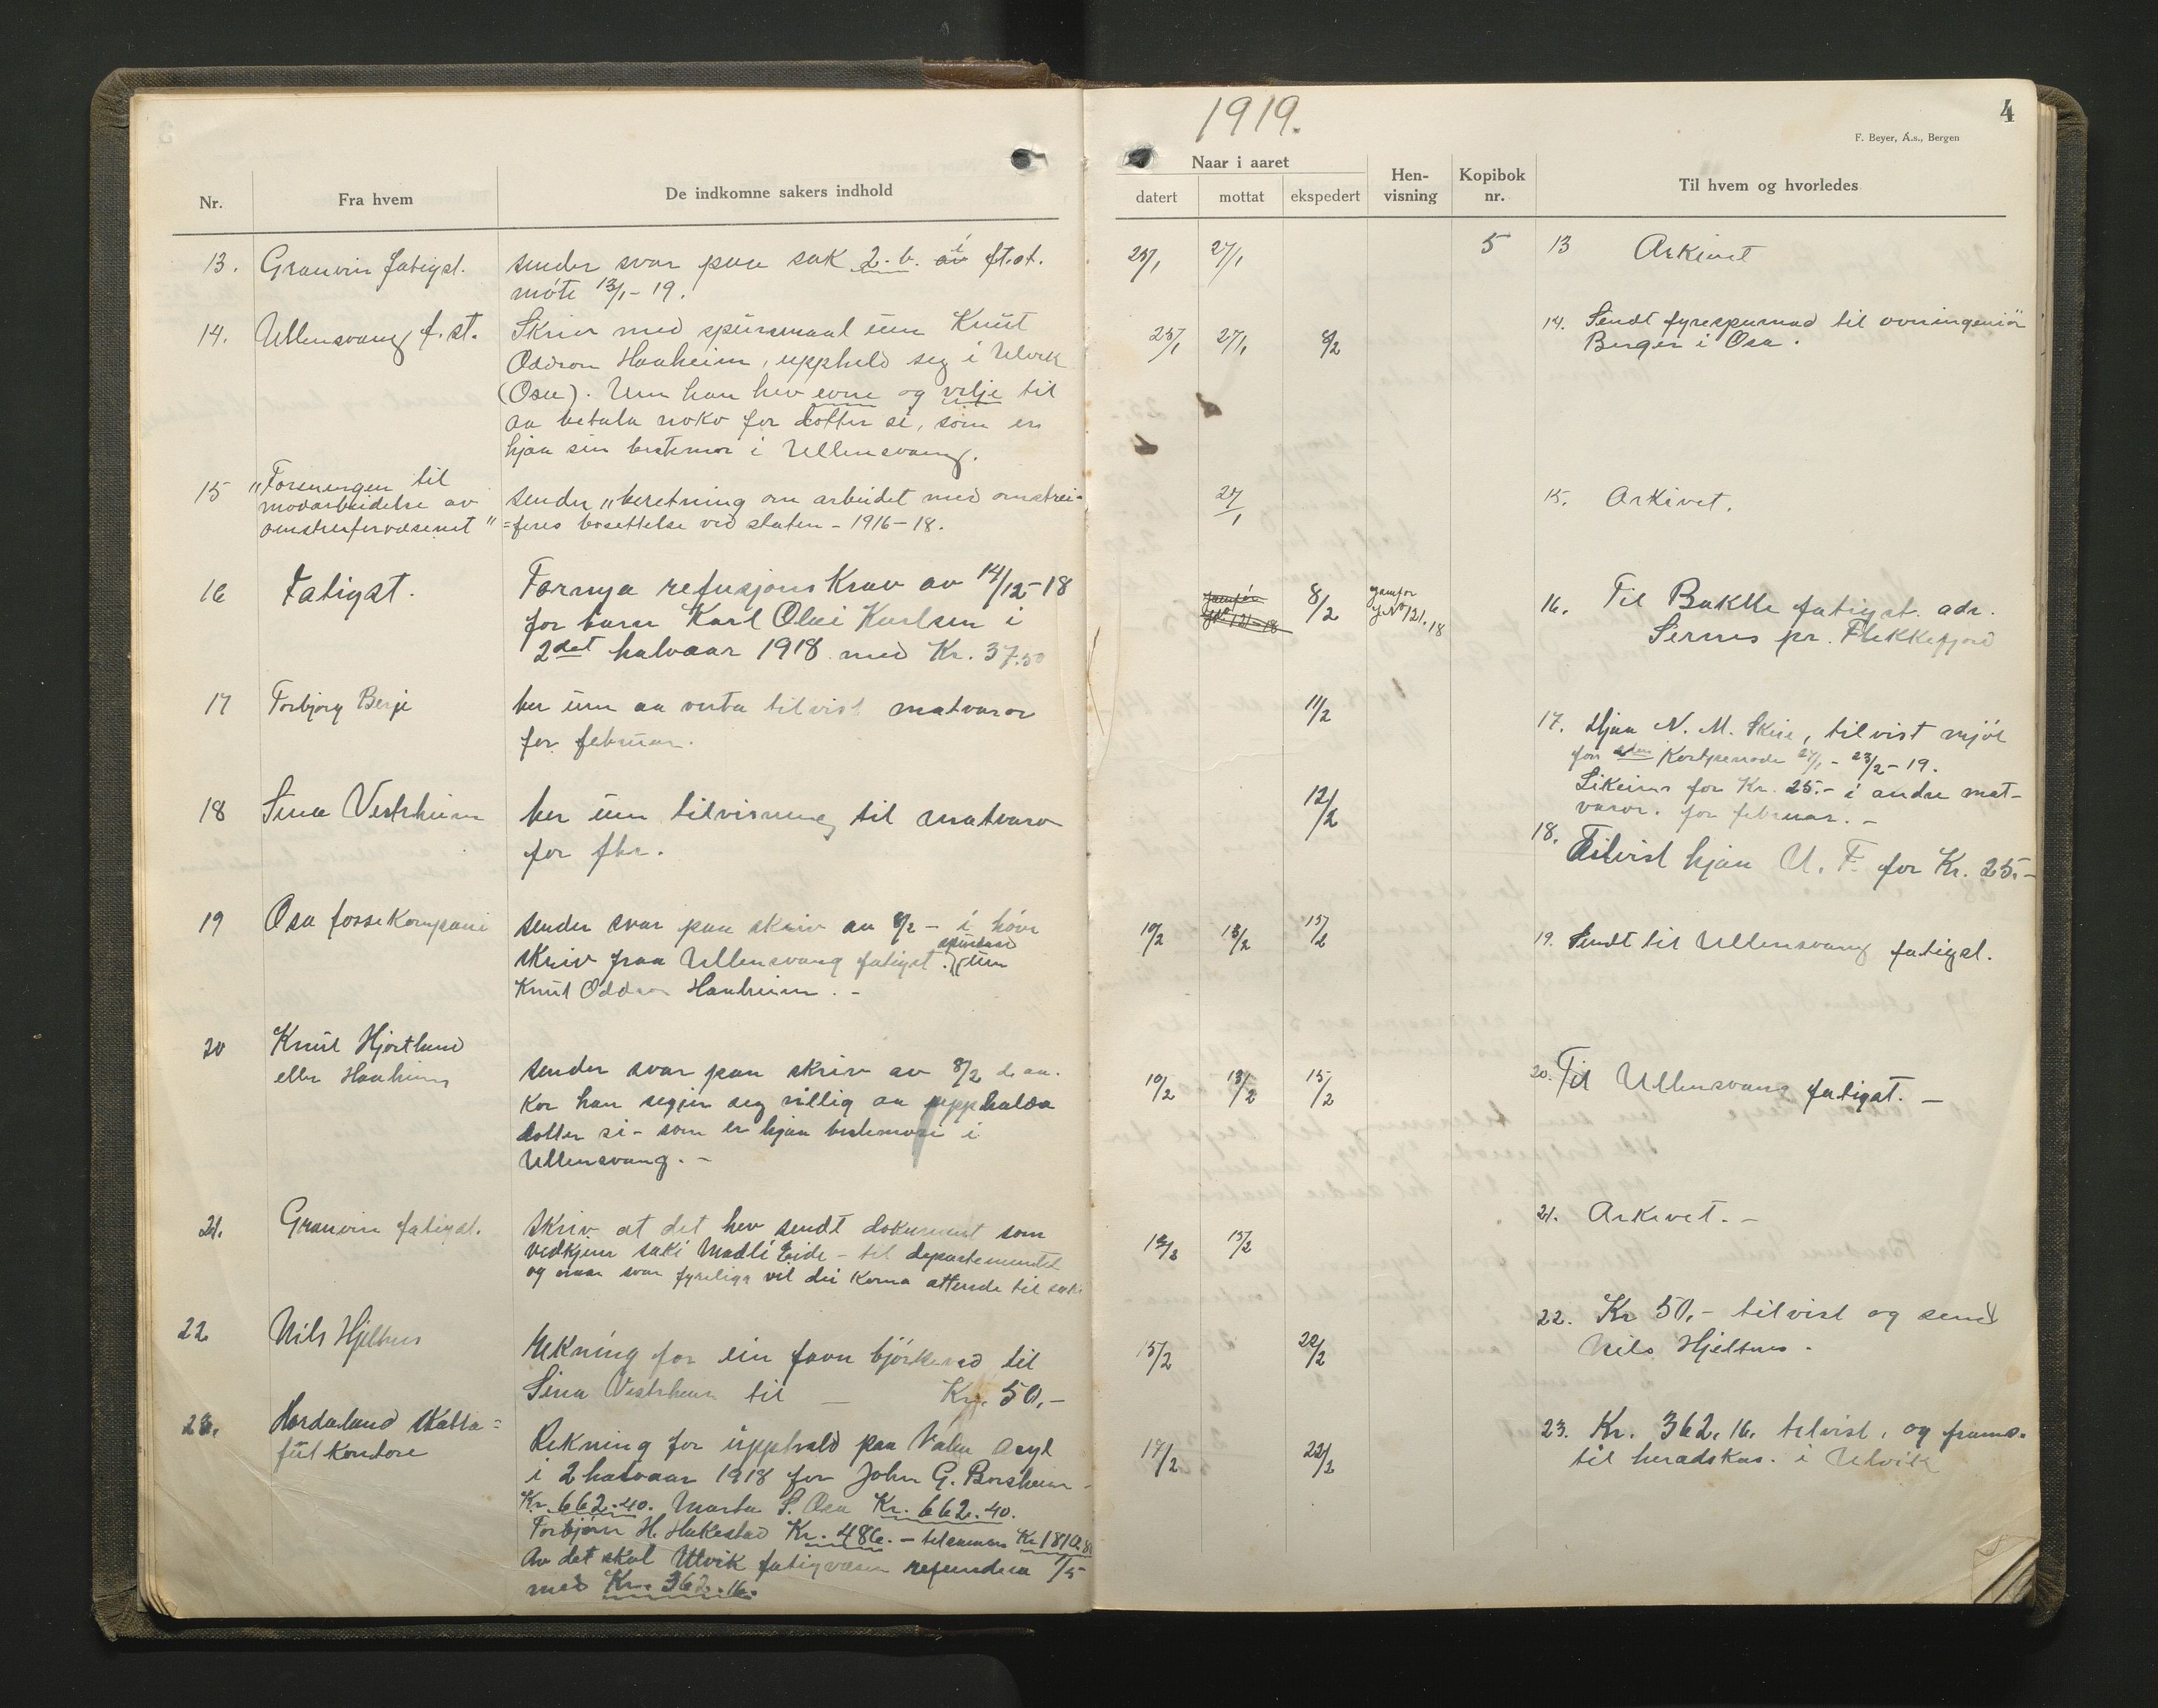 1919.
4
F. Beyer, A.s., Bergen
Nr.
Fra hvem
De indkomne sakers indhold
Naar i aaret
datert
mottat
ekspedert
Hen-
visning
Kopibok
nr.
Til hvem og hvorledes
13. Granvin fatigst.
sender svar paa sak 2. b. i ft.st.
møte 13/1 - 19.
27/1
5
13 Arkivet
14. Ullensvang f. st.
Skriv med spursmaal um Knut
Oddson Haaheim, uppheld seg i Ulvik
(Osa). Um han hev evne og vilje til
aa betala noko for dotter si, som er
hjaa sin bestemor i Ullensvang.
25/1 27/1 8/2
14. Sendt fyrespurnad til overingeniör
Berger i Osa.
15 "Foreningen til
modarbeidelse av
omstreifervæsenet"
sender "beretning om arbeidet med omstrei-
=feres bosettelse ved staten - 1916-18.
27/1
15. Arkivet.
16 Fatigst.
Fornya refusjonskrav av 14/12-18
for barn Karl Olai Karlsen i
2det halvaar 1918 med Kr. 37.50
8/2
jamfør
J.No 121.18
16. Til Bakke fatigst. adr.
Sirnes pr. Flekkefjord
17 Torbjørg Berje
ber um aa verta tilvist matvaror
for februar.
11/2
17. Hjaa N. M. Skeie, tilvist mjöl
for Kortperiode 27/1 - 23/2 - 19.
Likeins for Kr. 25.- i andre mat-
varor. for februar. -
18 Sina Vestrheim
ber um tilvisning til matvaror
for fbr.
12/2
18. Tilvist hjaa U. F. for Kr. 25.-
19 Osa fossekompani
sender svar paa skriv av 8/2 - i høve
skriv fraa Ullensvang fatigst. spursmaal um
Knut Oddson Haaheim. -
10/2 13/2 15/2
19. Sendt til Ullensvang fatigst.
20 Knut Hjortland
eller Haaheim
sender svar paa skriv av 8/2 d. aa.
Kor han segjer seg villig aa upphalda
dotter si - som er hjaa bestemori i
Ullensvang. -
10/2 13/2 15/2
20. Til Ullensvang fatigst. -
21. Granvin fatigst.
Skriv at det hev sendt dokument som
vedkjem saki Madli Eide - til departementet
og naar svar fyreligg vil dei koma attende til saki
15/2
21. Arkivet. -
22 Nils Hjeltnes
Rekning for ein favn björkeved til
Sina Vestrheim til - Kr. 50,-
15/2 22/2
22. Kr 50,- tilvist og sendt
Nils Hjeltnes.
23. Hordaland skatta=
futkontore
Rekning for upphald paa Valen Asyl
i 2 halvaar 1918 for John G. Borsheim -
Kr. 662.40. Marta S. Osa Kr. 662.40.
Torbjørn H. Hakestad Kr. 486. - tilsaman Kr 1810.80
Av det skal Ulvik fatigvæsen refundera 1/5
med Kr. 362.16.
17/2 22/2
23. Kr. 362,16. tilvist, og frams.
til heradskas. i Ulvik